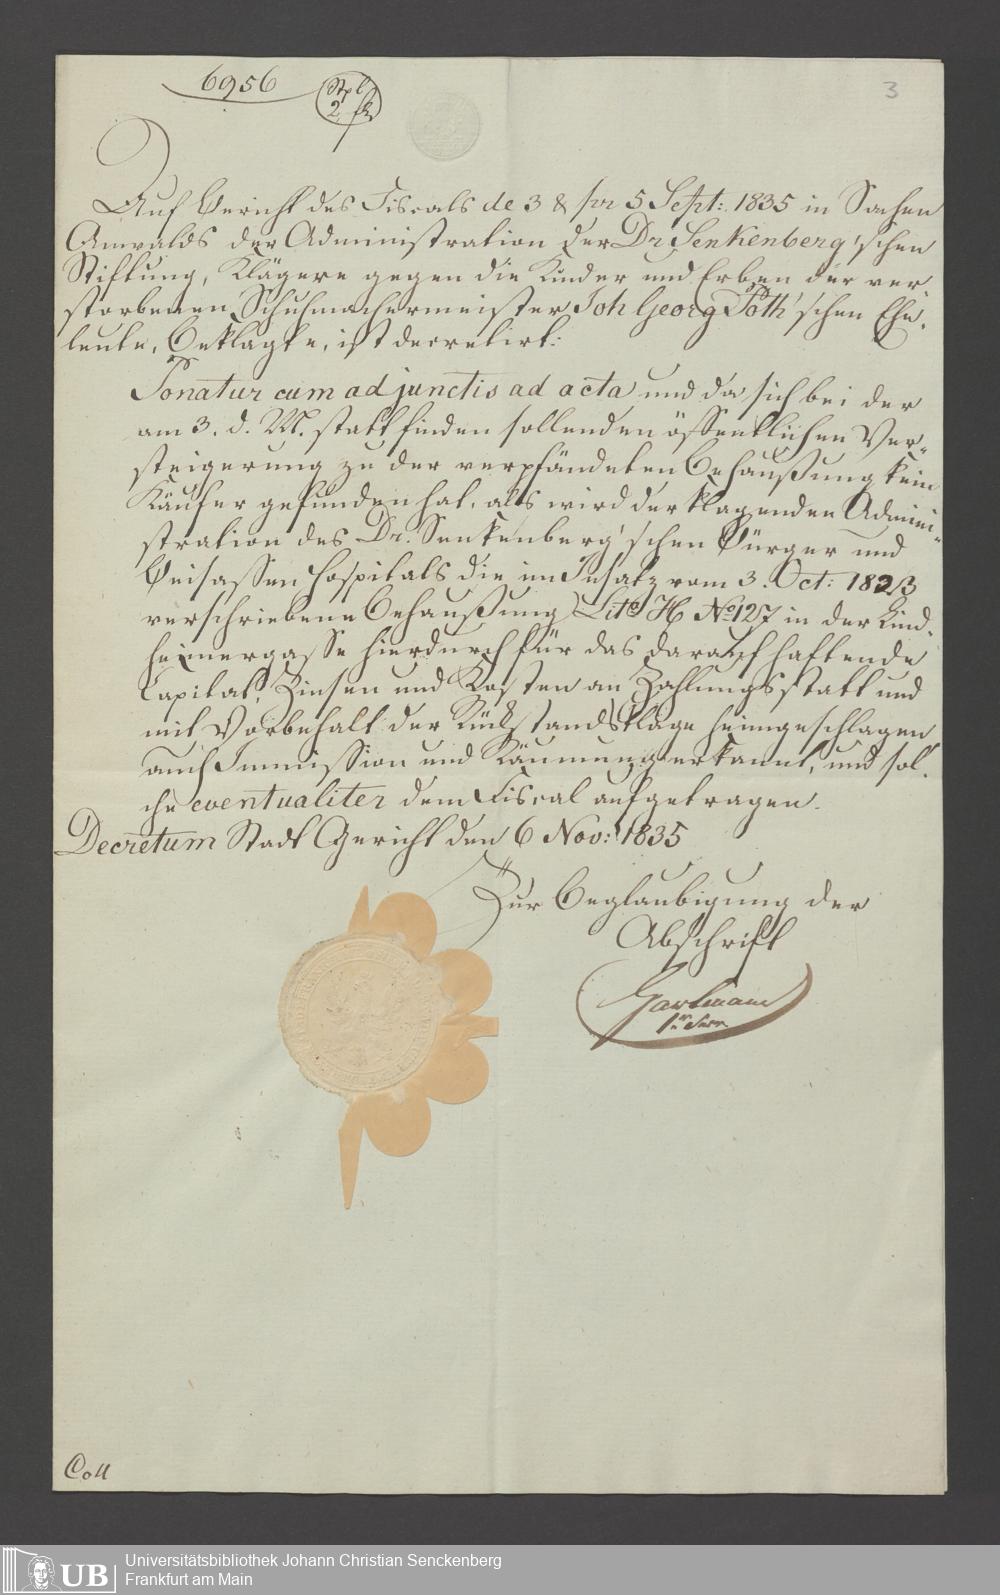 6956
Stpl
2 fl
3
Auf Bericht des Fiscals de 3 & pr 5 Sept: 1835 in Sachen
Anwalds der Administration der Dr Senkenberg'schen
Stiftung, Klägere gegen die Kinder und Erben der ver
storbenen Schuhmachermeister Joh Georg Poth'schen Ehe-
leute, Beklagte, ist decretirt:
Ponatur cum adjunctis ad acta und da sich bei der
am 3. d. M. stattfinden sollenden öffentlichen Ver-
steigerung zu der verpfändeten Behaußung kein
Käufer gefunden hat, als wird der klagenden Admini-
stration des Dr. Senkenberg'schen Bürger und
Beisassen Hospitals die im Insatz vom 3. Oct: 1823
verschriebene Behaußung Lit H No 127 in der Lind-
heimergasse hierdurch für das darauf haftende
Capital, Zinsen und Kosten an Zahlungsstatt und
mit Vorbehalt der Rückstandsklage heimgeschlagen
auch Immission und Räumung erkannt, und sol-
che eventualiter dem Fiscal aufgetragen.
Decretum Stadt Gericht den 6 Nov: 1835
Zur Beglaubigung der
Abschrift
Hartmann
Coll
UB
Universitätsbibliothek Johann Christian Senckenberg
Frankfurt am Main